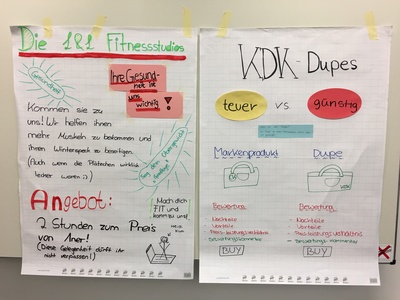 Die 1&1 Fitnessstudios
Gesundheit
Ihre Gesund-
heit ist
uns
wichtig
Kommen sie zu
uns! Wir helfen ihnen
mehr Muskeln zu bekommen und
ihren Winterspeck zu beseitigen.
(Auch wenn die Plätzchen wirklich
lecker waren :))
Angebot:
Mach dich
FIT und
komm zu uns!
2 Stunden zum Preis
von 1ner!
(Diese Gelegenheit dürft ihr
nicht verpassen!)
KDK-Dupes
teuer vs günstig
Markenprodukt Dupe
KDK
Bewertung Bewertung
- Nachteile - Nachteile
- Vorteile - Vorteile
- Preis-leistungsverhältnis - Preis-leistungsverhältnis
BUY BUY